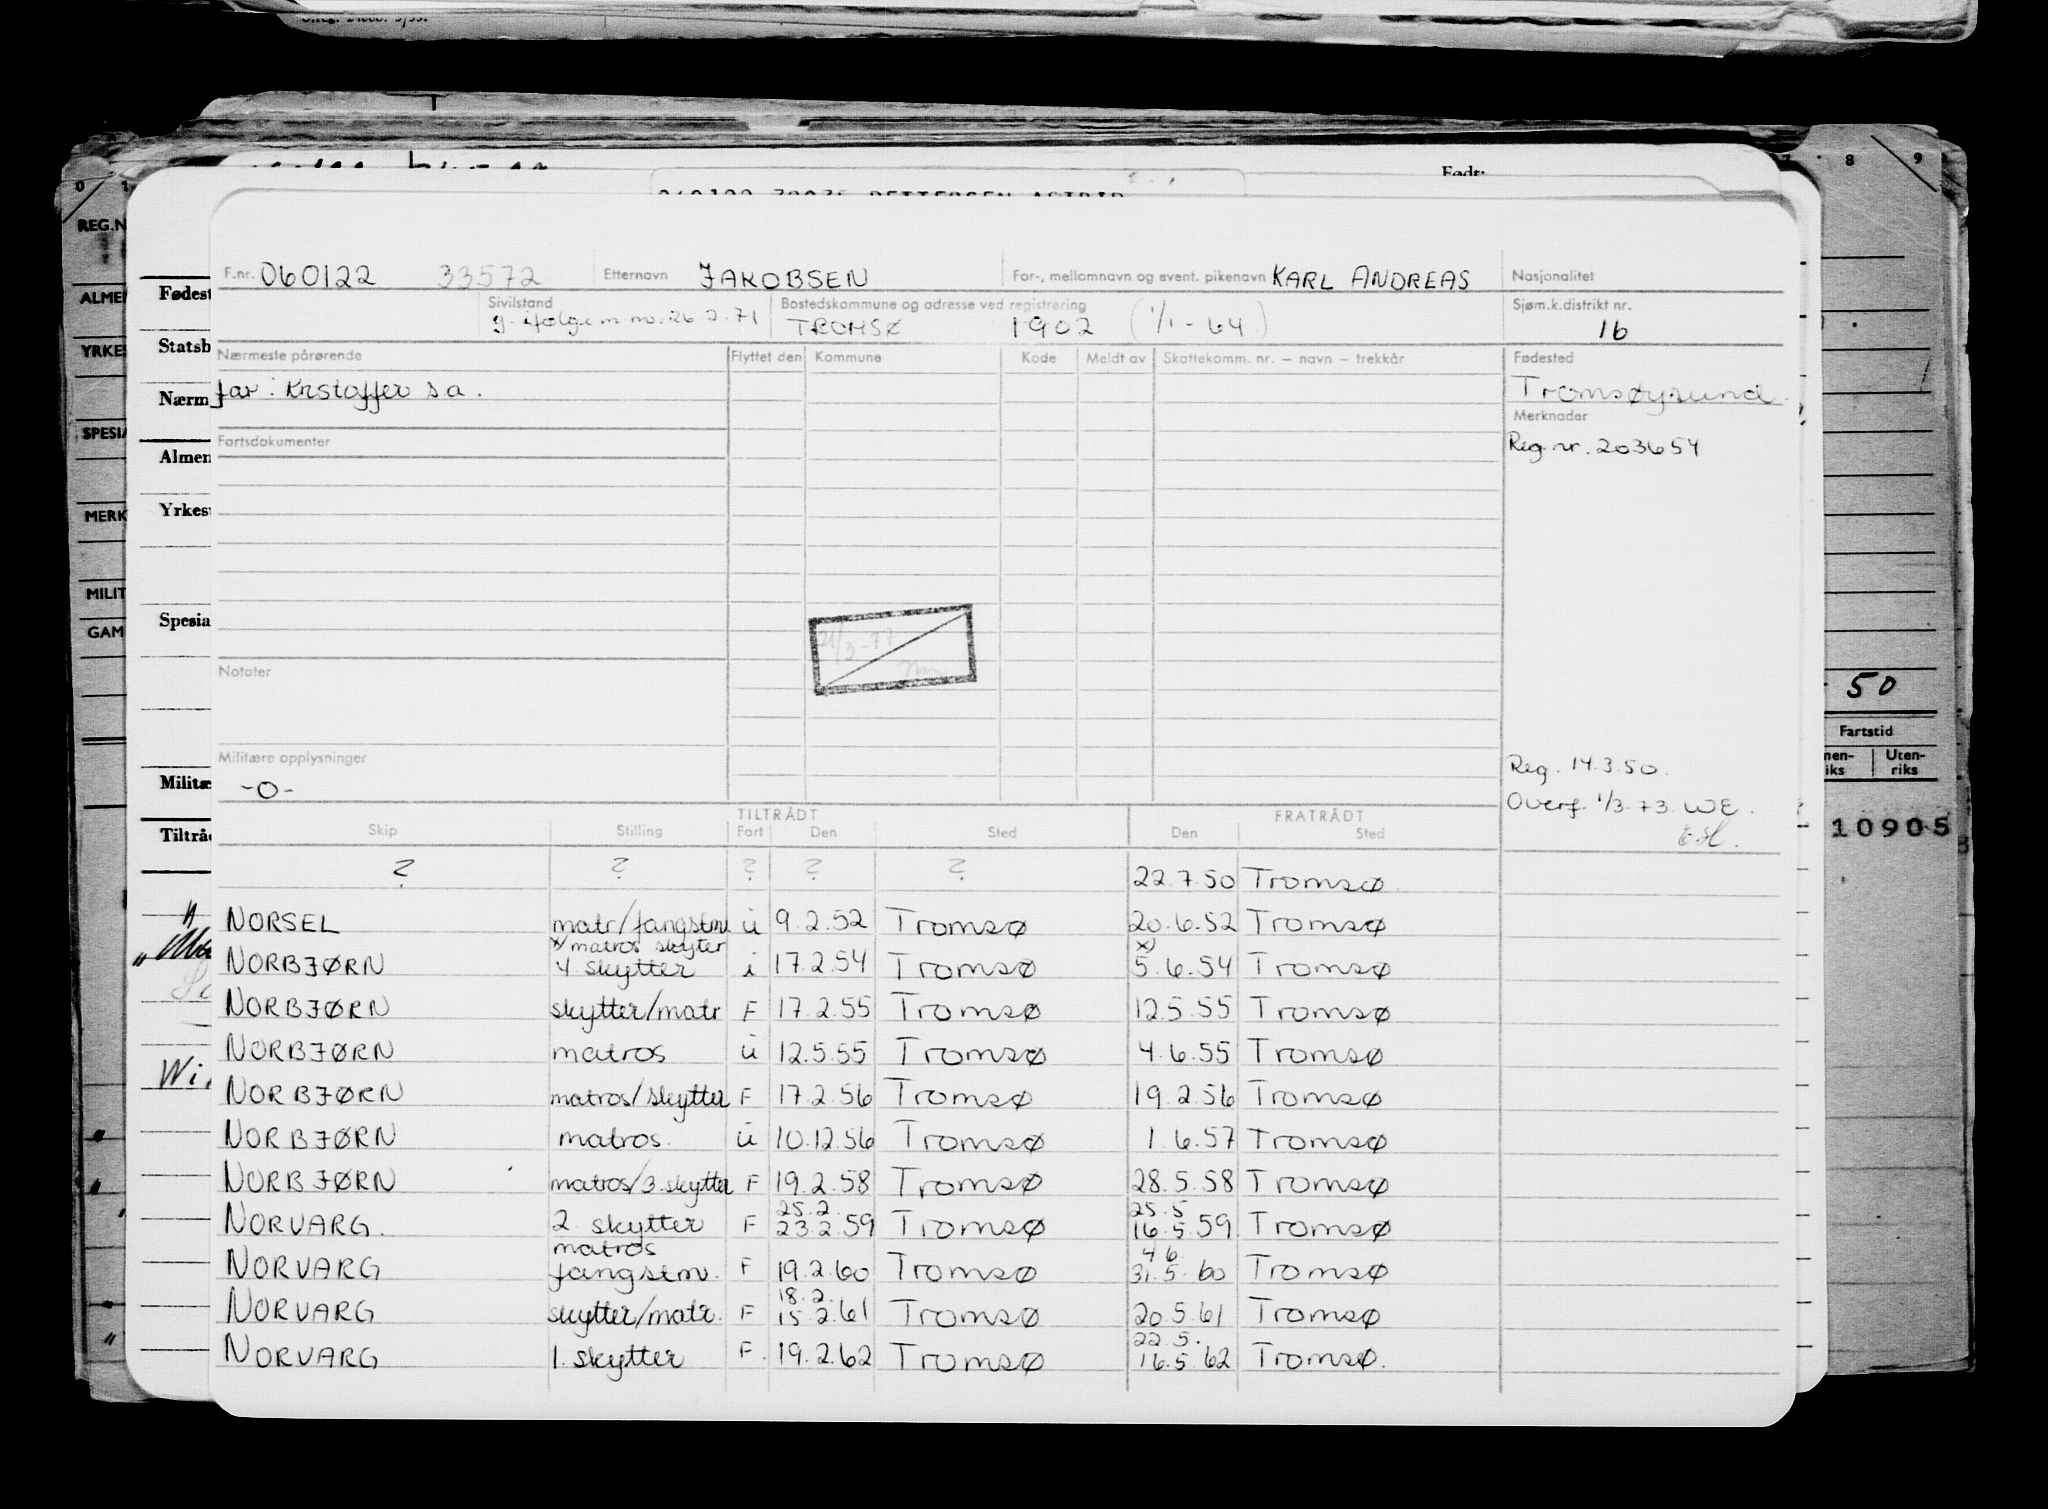 Født:
8 9
0
REG.N
ALMEN
YRKES
SPESIA
MERK
MILIT
GAM
Fødest
Statsb
Nærm
Almen
Yrkes
Spesia
Militæ
Tiltråd
F.nr. 060122 33572 Etternavn JAKOBSEN For-, mellomnavn og event. pikenavn KARL ANDREAS Nasjonalitet
Sivilstand g. ifølge m.m. 26.2.71 Bostedskommune og adresse ved registrering TROMSØ 1902 (1/1-64) Sjøm.k.distrikt nr. 16
Nærmeste pårørende Flyttet den Kommune Kode Meldt av Skattekomm. nr. – navn – trekkår Fødested
far: Kristoffer s.a. Tromsøysund.
Merknader
Fartsdokumenter Reg. nr. 203654
21/3-77
Notater
50
Fartstid
Uten-
riks
10905
Militære opplysninger
-0-
Reg. 14.3.50.
Overf. 1/3-73. WE.
TILTRÅDT FRATRÅDT
Skip Stilling Fart Den Sted Den Sted
? ? ? ? ? 22.7.50 Tromsø.
NORSEL matr/fangstm. u 9.2.52 Tromsø 20.6.52 Tromsø
x) matros skyter x)
NORBJØRN 4. skytter i 17.2.54 Tromsø 5.6.54 Tromsø
NORBJØRN skytter/matr F 17.2.55 Tromsø 12.5.55 Tromsø
NORBJØRN matros u 12.5.55 Tromsø 4.6.55 Tromsø
NORBJØRN matros/skytter F 17.2.56 Tromsø 19.2.56 Tromsø
NORBJØRN matros. u 10.12.56 Tromsø 1.6.57 Tromsø
NORBJØRN matros/3.skytter F 19.2.58 Tromsø 28.5.58 Tromsø
25.2. 25.5
NORVARG. 2. skytter F 23.2.59 Tromsø 16.5.59 Tromsø
matros 4.6.
NORVARG fangstm. F 19.2.60 Tromsø 31.5.60 Tromsø
18.2.
NORVARG skytter/matr. F 15.2.61 Tromsø 20.5.61 Tromsø
22.5.
NORVARG 1. skytter F. 19.2.62 Tromsø 16.5.62 Tromsø.